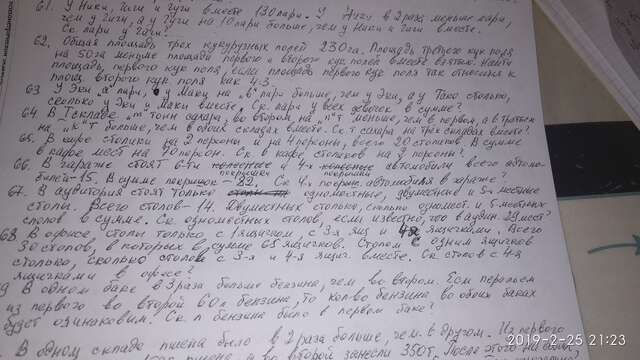 61. У Ники, Гиги и Гуги вместе 130 лари. У Гиги в 2 раза меньше лари,
чем у Гиги, а у Гуги на 10 лари больше, чем у Ники и Гиги вместе.
Ск. лари у Гиги?
62. Общая площадь трех кукурузных полей 230 га. Площадь третьего кук. поля
на 50 га меньше площади первого и второго кук. полей вместе взятых. Найти
площадь первого кук. поля, если площадь первого кук. поля так относится к
площ. второго кук. поля как 4:3.
63. У Эки "а" лари, у Маки на "в" лари больше, чем у Эки, а у Тако столько,
сколько у Эки и Маки вместе. Ск. лари у всех девочек в сумме?
64. В I складе "m" тонн сахара, во втором на "n" т меньше, чем в первом, а в третьем
на "к" т больше, чем в обоих складах вместе. Ск. т сахара на трех складах вместе?
65. В кафе столики на 2 персоны и на 4 персоны, всего 20 столиков. В сумме
в кафе мест на персон. Ск. в кафе столиков на персоны?
66. В гараже стоят 6-ти и 4-х автомобили всего автомо-
билей-15. В сумме покрышек - 82. Ск. 4х покрыш. автомобиля в гараже?
67. В аудитории стоят только одноместные, двуместные и 5-и местные
столы. Всего столов - 14. Двуместных столько, сколько одномест. и 5-местных
столов в сумме. Ск. одноместных столов, если известно, что в аудит. 29 мест?
68. В офисе, столы только с 1 ящичком, с 3-я ящ. и 4я ящичками. Всего
30 столов, в которых в сумме 65 ящичков. Столов с одним ящичков
столько, сколько столов с 3-я и 4-я ящич. вместе. Ск. столов с 4я
ящичками в офисе?
9 В одном баке в 3 раза больше бензина, чем во втором. Если перельем
из первого во второй 60 л бензина, то кол-во бензина во обоих баках
будет одинаковым. Ск. л бензина было в первом баке?
В одном складе пшена было в 2 раза больше, чем в другом. Из первого
пшена, и во второй занесли 350т. После этого на обоих
2019-2-25 21:23